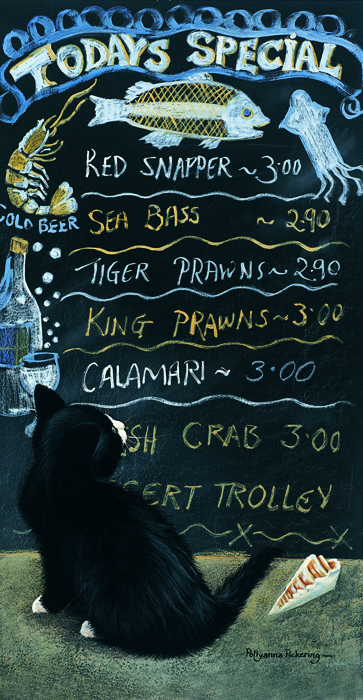 TODAYS SPECIAL
RED SNAPPER ~ 3.00
COLD BEER
SEA BASS ~ 2.90
TIGER PRAWNS ~ 2.90
KING PRAWNS ~ 3.00
CALAMARI ~ 3.00
SH CRAB 3.00
ERT TROLLEY
~X~X~
Pollyanna Pickering